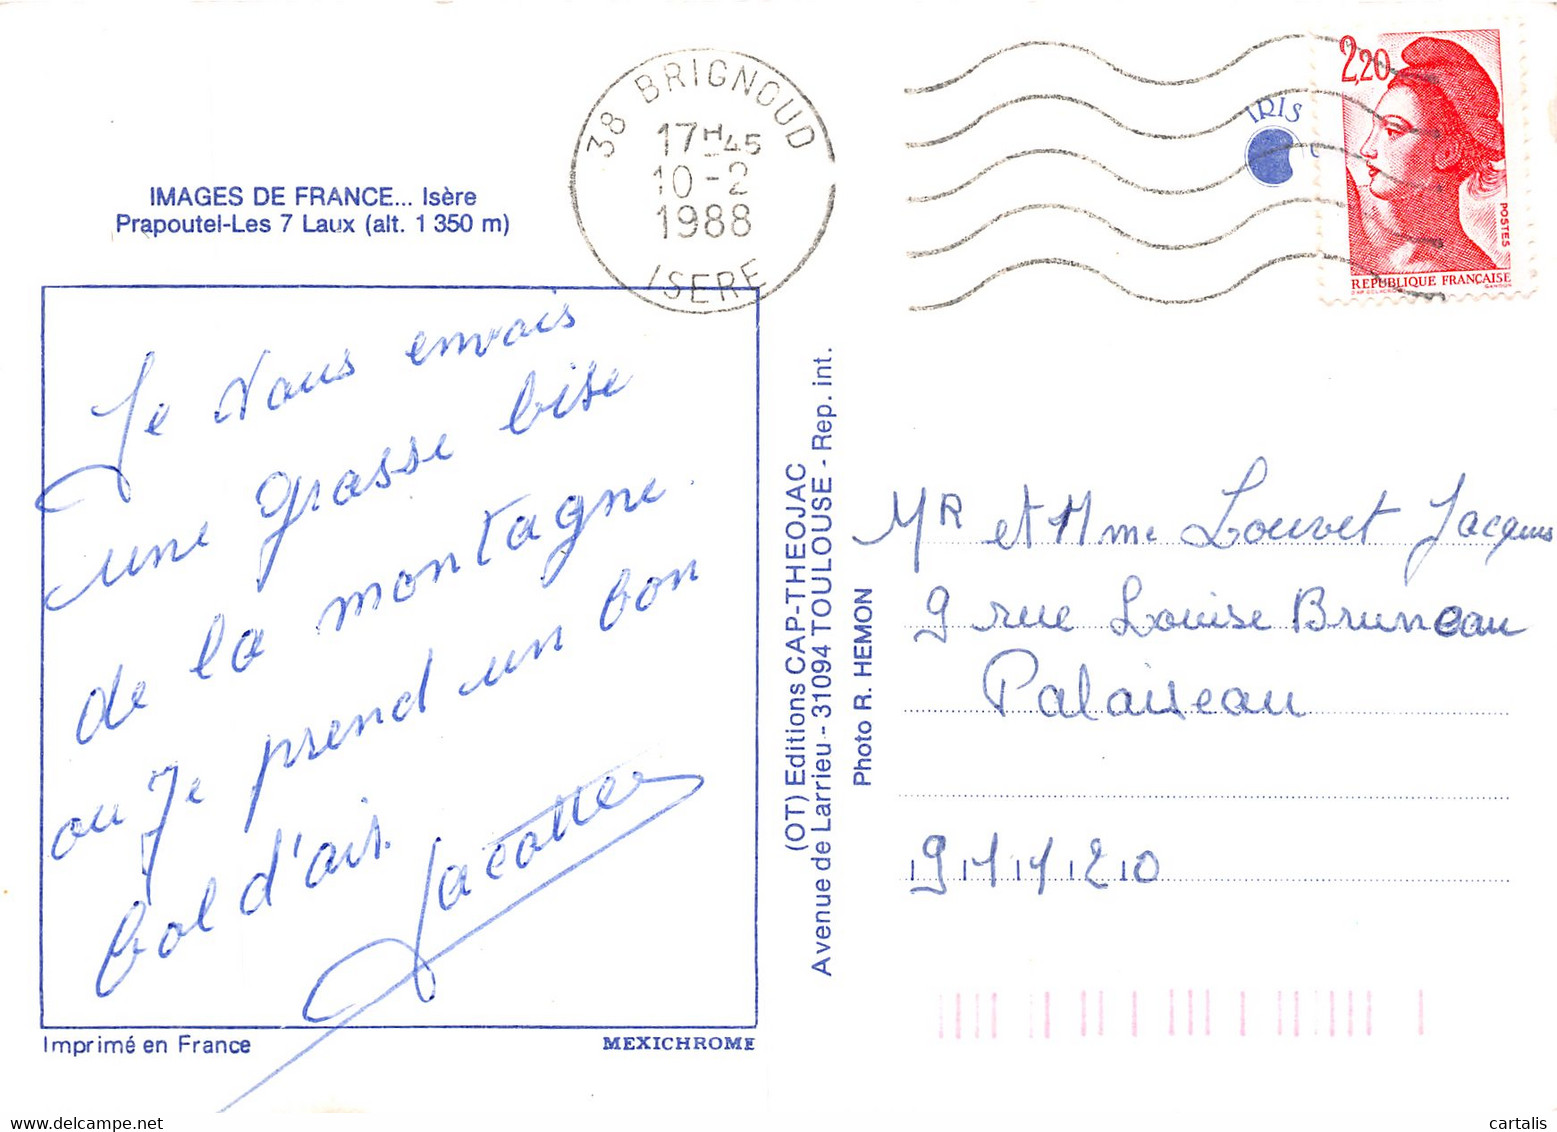 38 BRIGNOUD
17H45
10-2
1988
ISERE
IRIS
2,20
POSTES
REPUBLIQUE FRANÇAISE
IMAGES DE FRANCE... Isère
Prapoutel-Les 7 Laux (alt. 1 350 m)
Je vous envois
une grosse bise
de la montagne.
ou Je prend un bon
bol d'air.
Jacotte
Imprimé en France
MEXICHROME
(OT) Editions CAP-THEOJAC
Avenue de Larrieu - 31094 TOULOUSE - Rep. int.
Photo R. HEMON
MR et Mme Louvet Jacques
9 rue Louise Bruneau
Palaiseau
91120
cartalis